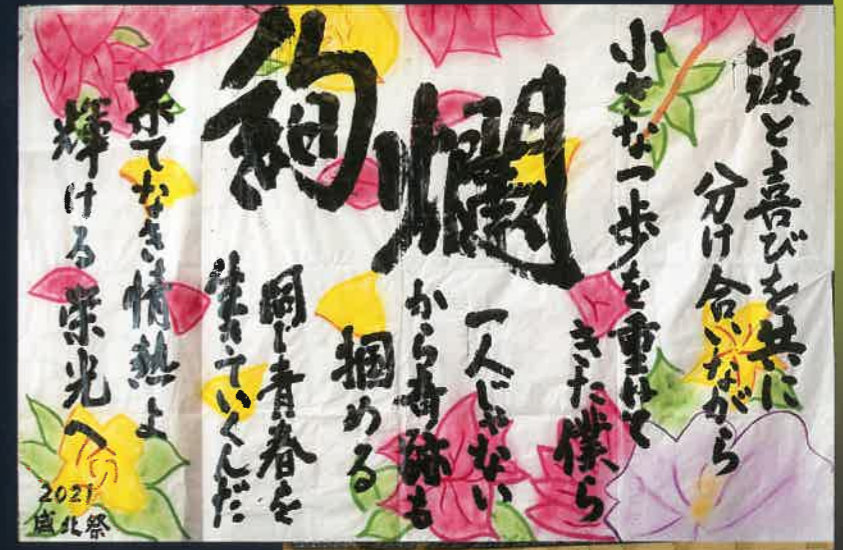 涙と喜びを共に
分け合いながら
小さな一歩を重ねて
きた僕ら
絢爛
一人じゃない
から奇跡も
掴める
同じ青春を
生きていくんだ
果てなき情熱よ
輝ける栄光へ
2021
盛北祭